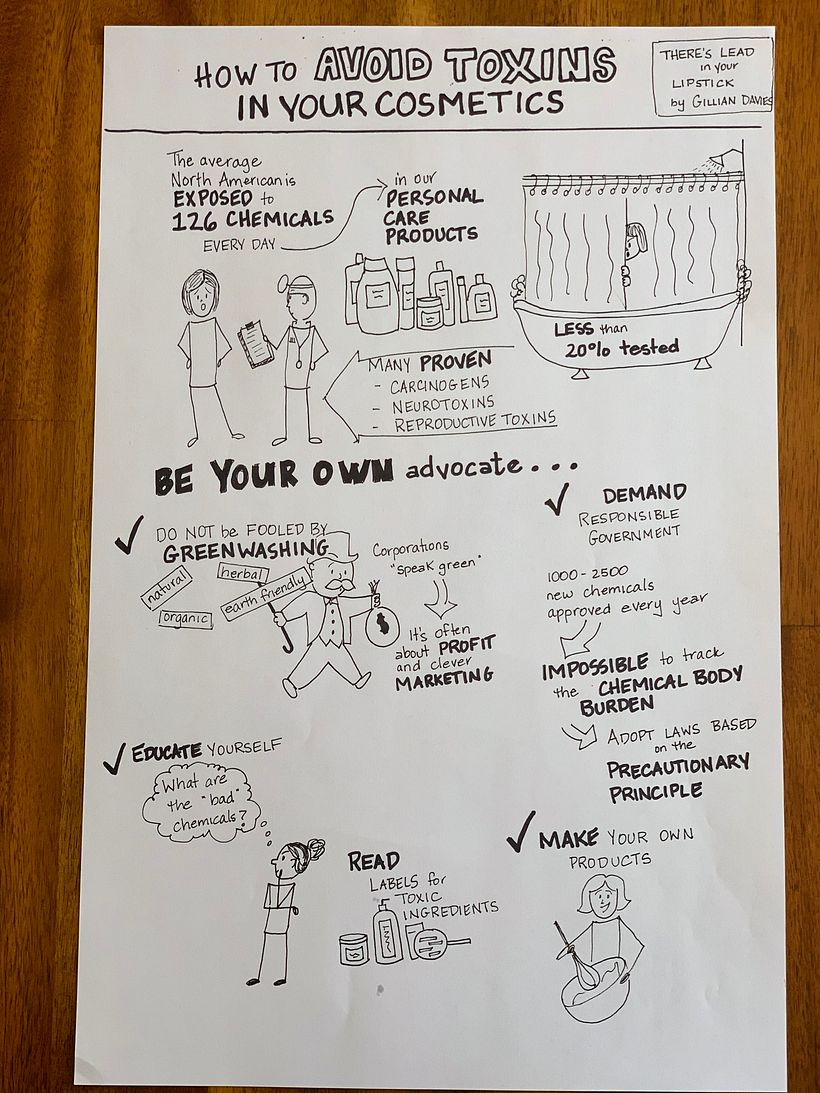 HOW TO AVOID TOXINS
IN YOUR COSMETICS
THERE'S LEAD
in your
LIPSTICK
by GILLIAN DAVIES
The average
North American is
EXPOSED to
126 CHEMICALS
EVERY DAY
in our
PERSONAL
CARE
PRODUCTS
LESS than
20% tested
MANY PROVEN
- CARCINOGENS
- NEUROTOXINS
- REPRODUCTIVE TOXINS
BE YOUR OWN advocate...
DO NOT be FOOLED BY
GREENWASHING
natural
herbal
organic
earth friendly
Corporations
"speak green"
It's often
about PROFIT
and clever
MARKETING
DEMAND
RESPONSIBLE
GOVERNMENT
1000-2500
new chemicals
approved every year
IMPOSSIBLE to track
the CHEMICAL BODY
BURDEN
ADOPT LAWS BASED
on the
PRECAUTIONARY
PRINCIPLE
EDUCATE YOURSELF
What are
the "bad"
chemicals?
READ
LABELS for
TOXIC
INGREDIENTS
MAKE YOUR OWN
PRODUCTS